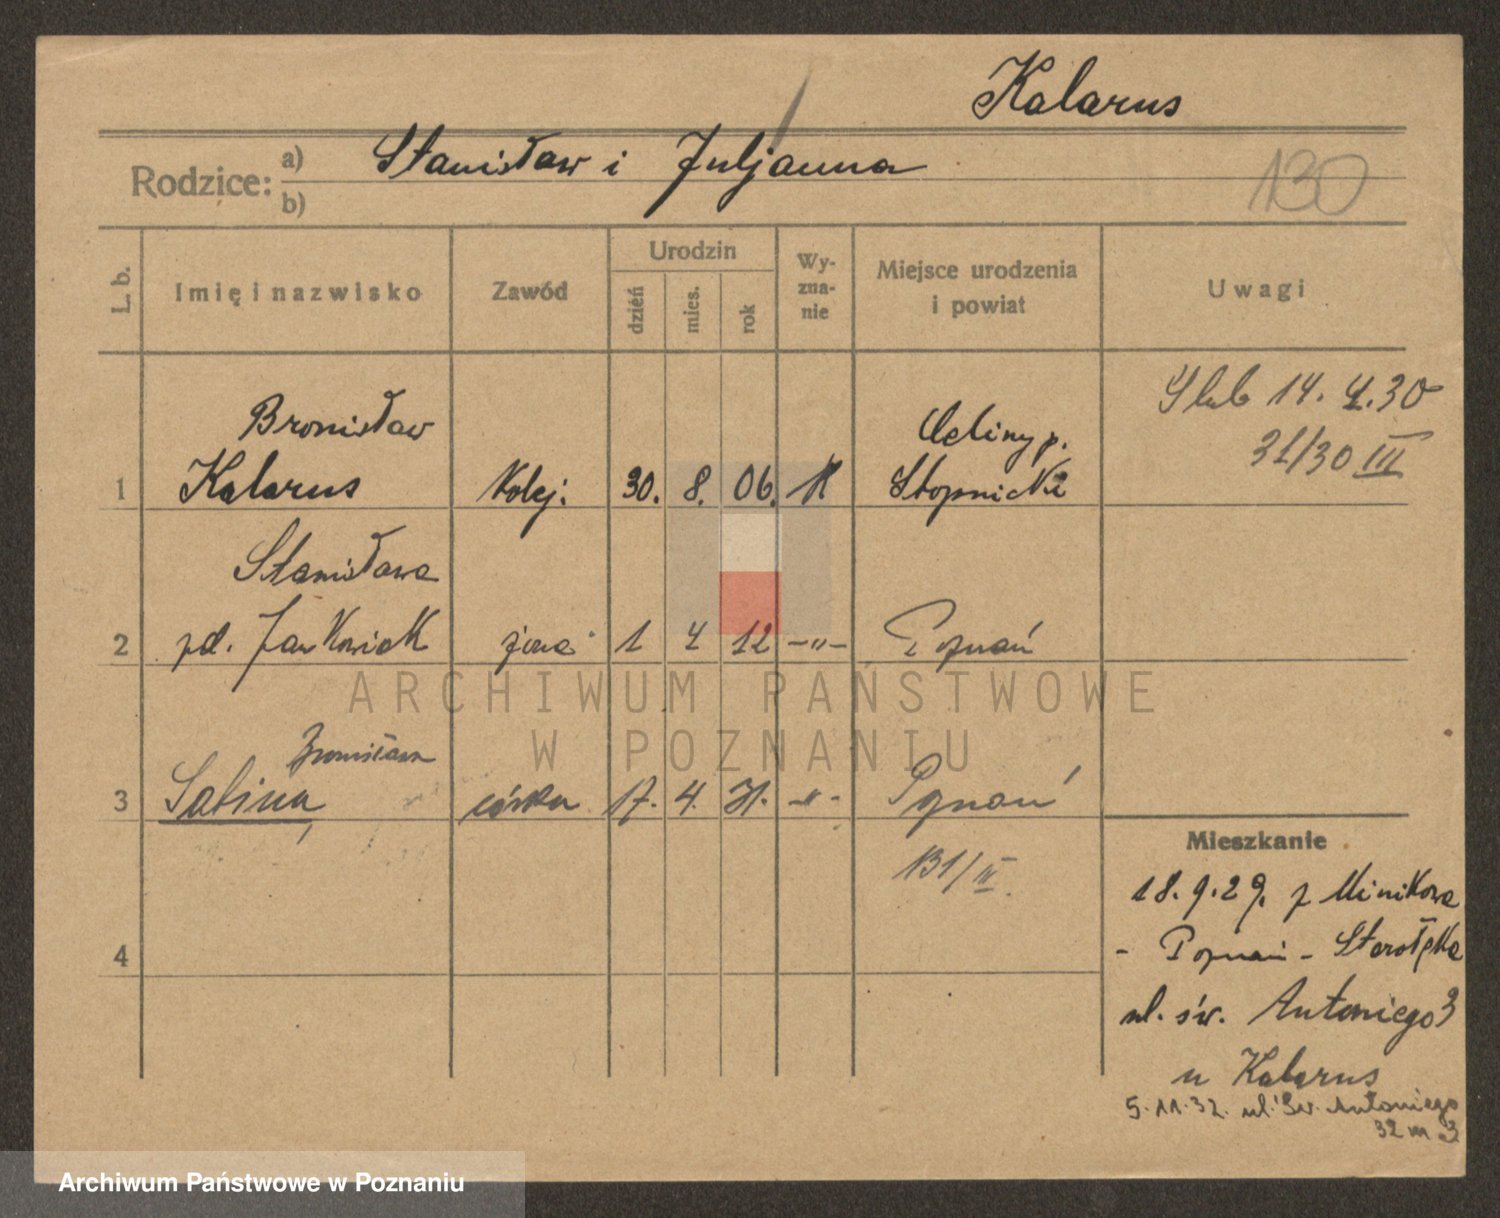 Kalarus
Rodzice: a) Stanisław i Juljanna
b)
130
L. b. Imię i nazwisko Zawód Urodzin dzień mies. rok Wy-zna-nie Miejsce urodzenia i powiat Uwagi
Bronisław
1 Kalarus Kolej. 30. 8. 06. K
Stopnicki
Ślub 14. 4. 30
31/30 III
Stanisława
2 zd. Jankowiak żona 1 4 12 -"- Poznań
Bronisława
3 Sabina córka 17. 4. 31. -"- Poznań
131/IV.
4
Mieszkanie
18. 9. 29. z Minikowa
- Poznań - Starołęka
ul. św. Antoniego 3
u Kalarus
5. 11. 32. ul. Św. Antoniego
32 m 3
ARCHIWUM PAŃSTWOWE
W POZNANIU
Archiwum Państwowe w Poznaniu